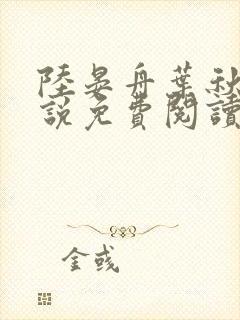 陸晏舟葉秋
說免費閱讀
金彧